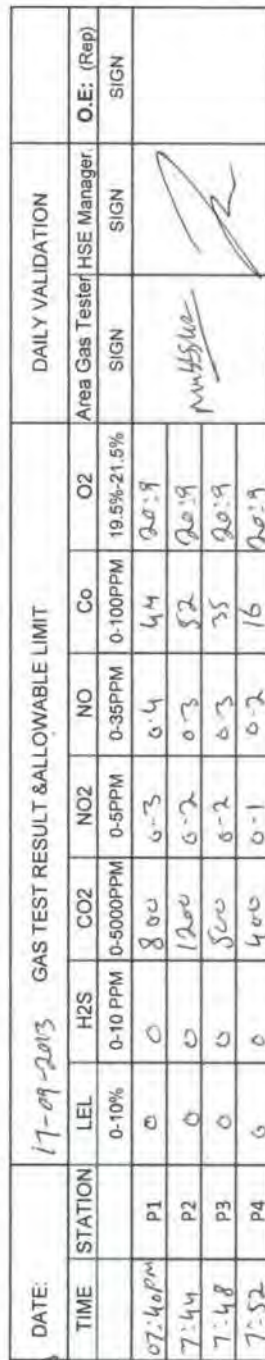 DATE: 17-09-2013 GAS TEST RESULT &ALLOWABLE LIMIT DAILY VALIDATION
TIME STATION LEL H2S CO2 NO2 NO Co O2 Area Gas Tester HSE Manager. O.E: (Rep)
0-10% 0-10 PPM 0-5000PPM 0-5PPM 0-35PPM 0-100PPM 19.5%-21.5% SIGN SIGN SIGN
07:40PM P1 0 0 800 0-3 0.4 44 20:9
7:44 P2 0 0 1200 0-2 0.3 52 20:9
7:48 P3 0 0 500 0-2 0.3 35 20:9
7:52 P4 0 0 400 0-1 0-2 16 20:9